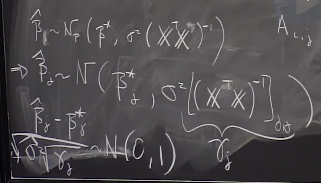 β̂ ~ N_p(β*, σ²(XᵀX)⁻¹) A_{i,j}
⇒ β̂_j ~ N(β*_j, σ²[(XᵀX)⁻¹]_{j,j})
β̂_j - β*_j γ_j
√σ²γ_j ~ N(0,1)